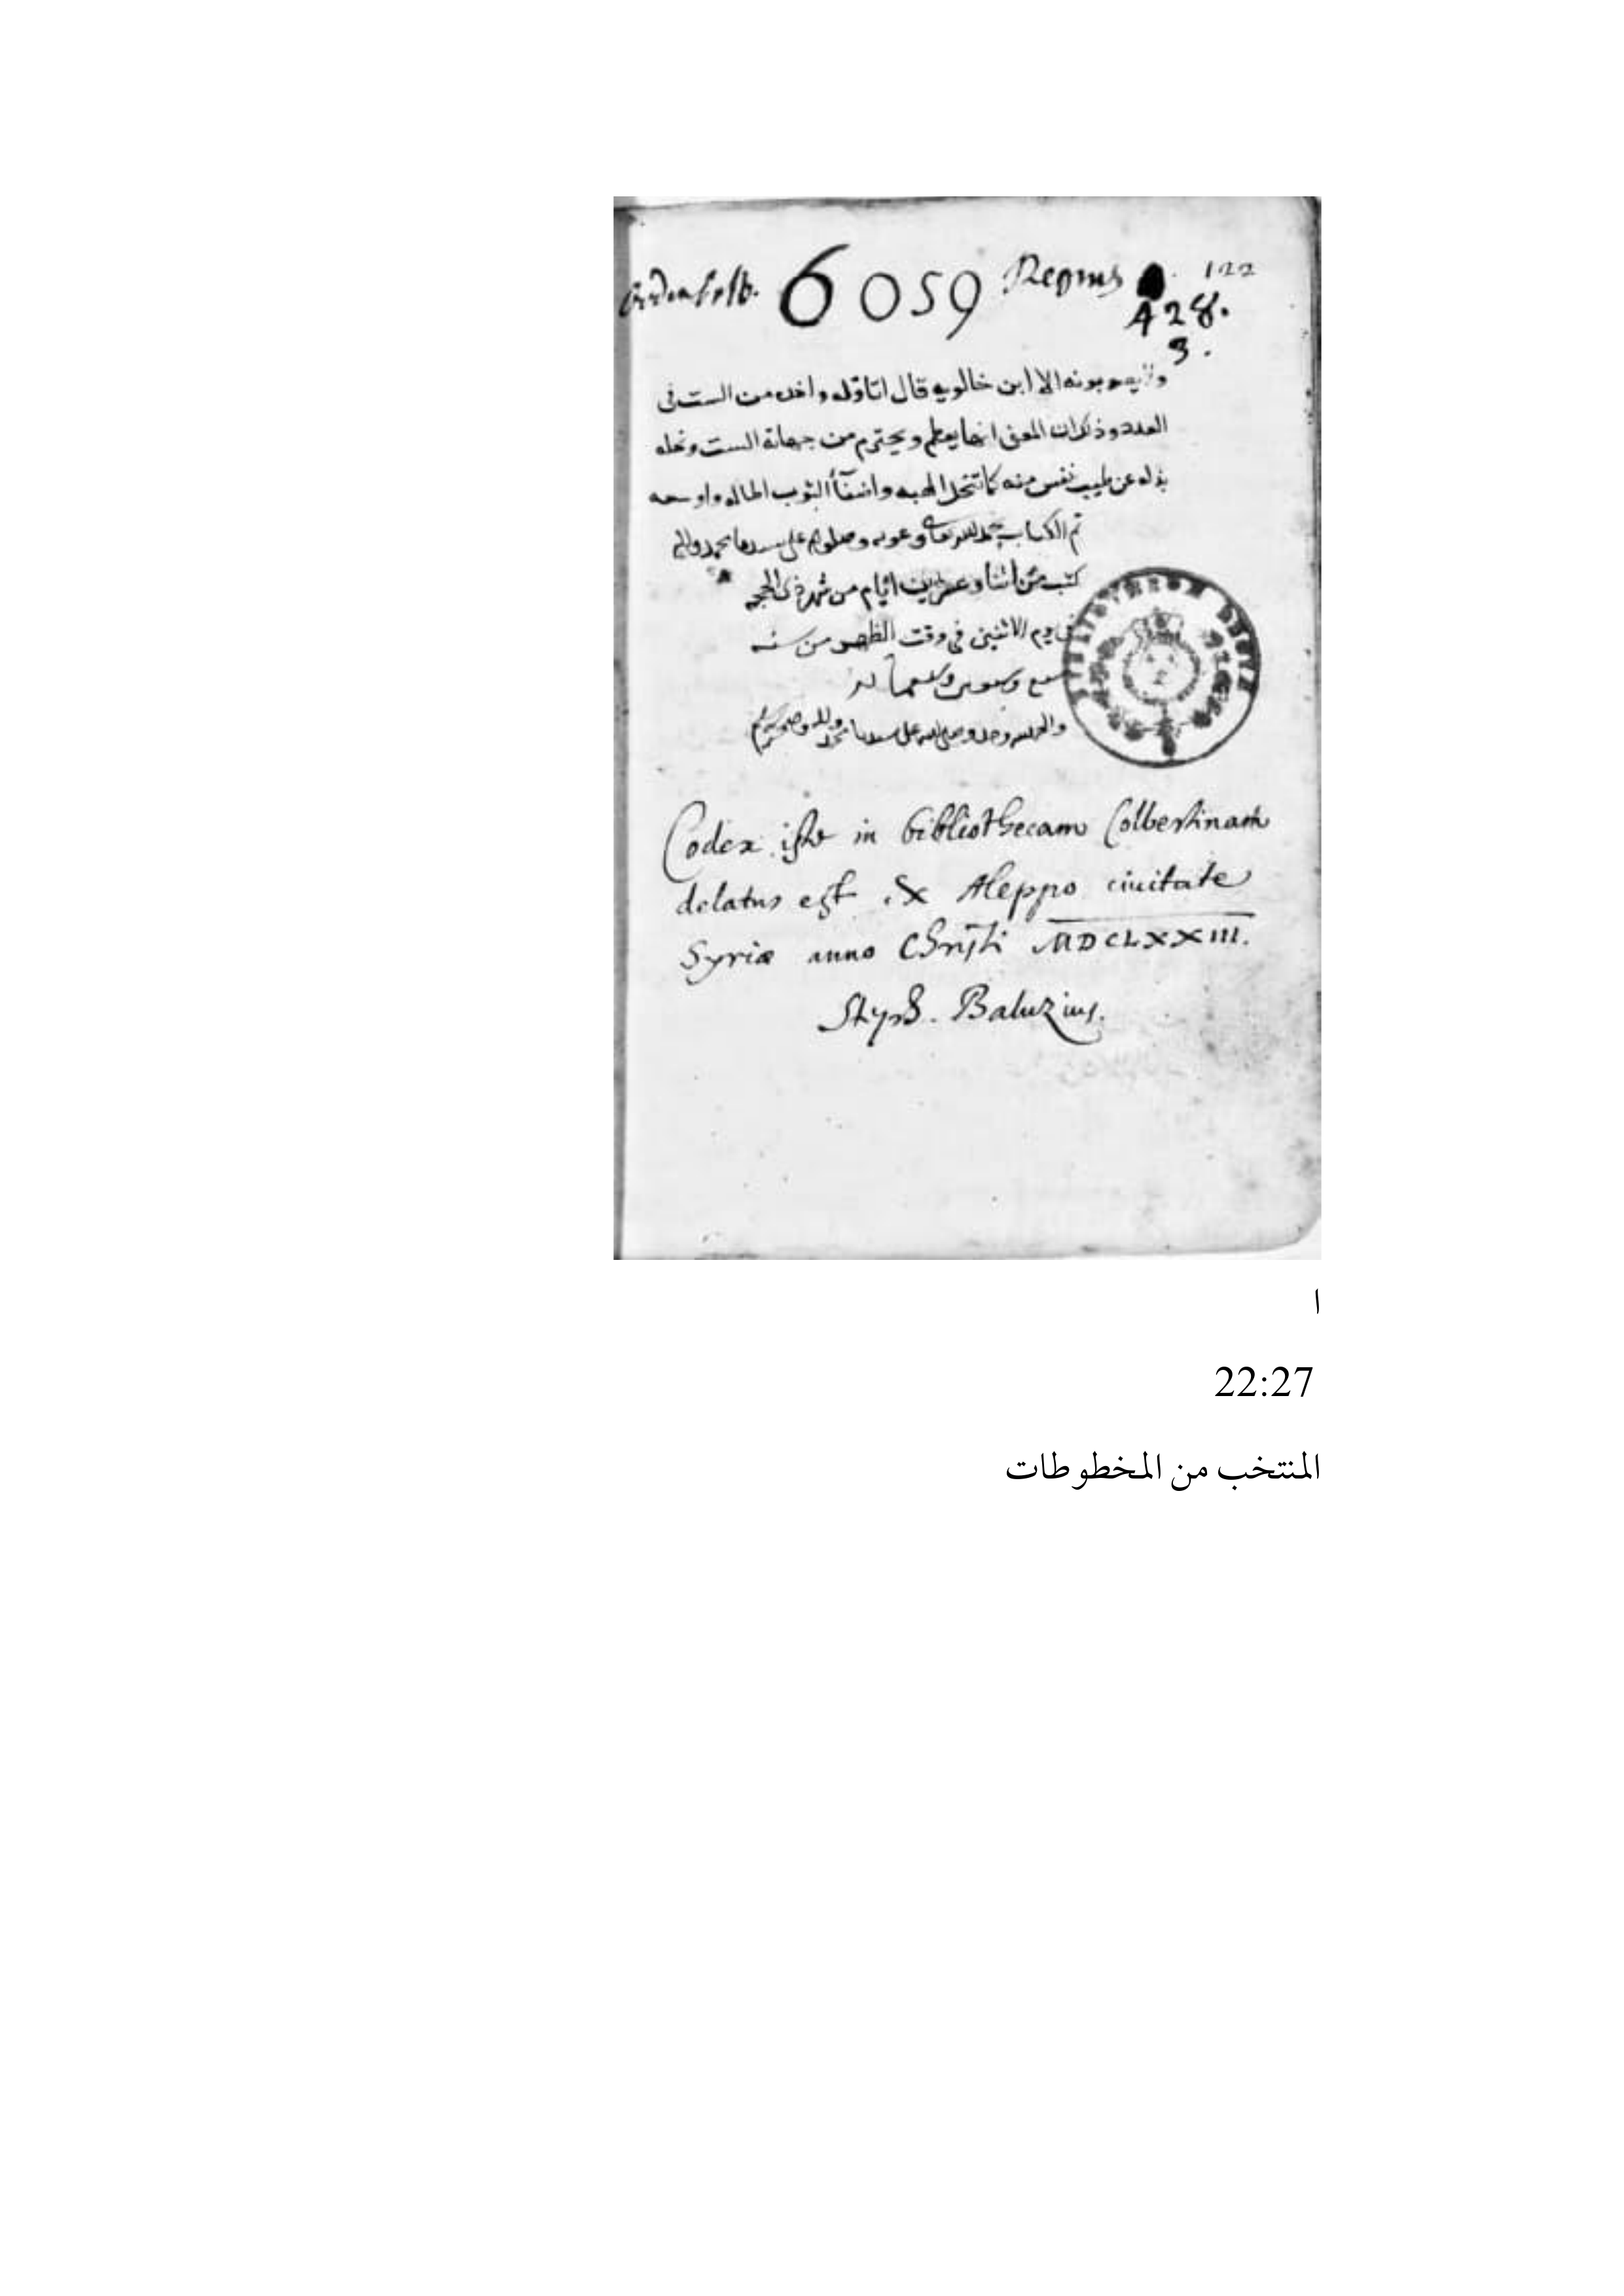 6059 Regius 122
428.
3.
ولا يصوبونه الا ابن خالويه قال اتاوله واخده من الست فى
العدد وذلك ان المعنى انها يعظم ويحترم من جهاته الست ونحله
بذله عن طيب نفس منه كما تنحل الهبه وايضاً الثوب اطاله واوسعه
تم الكتاب بحمد الله تعالى وعونه وصلواته على سيدنا محمد واله
كتب من اثنا وعشرين ايام من شهر ذى الحجه
فى يوم الاثنين فى وقت الظهر من سنه
سبع وسبعين وسبعمائه
والحمد لله وحده وصلى الله على سيدنا محمد واله وصحبه
Codex iste in bibliothecam Colbertinam
delatus est ex Aleppo ciuitate
Syriæ anno Christi MDCLXXIII.
Steph. Baluzius.
ا
22:27
المنتخب من المخطوطات